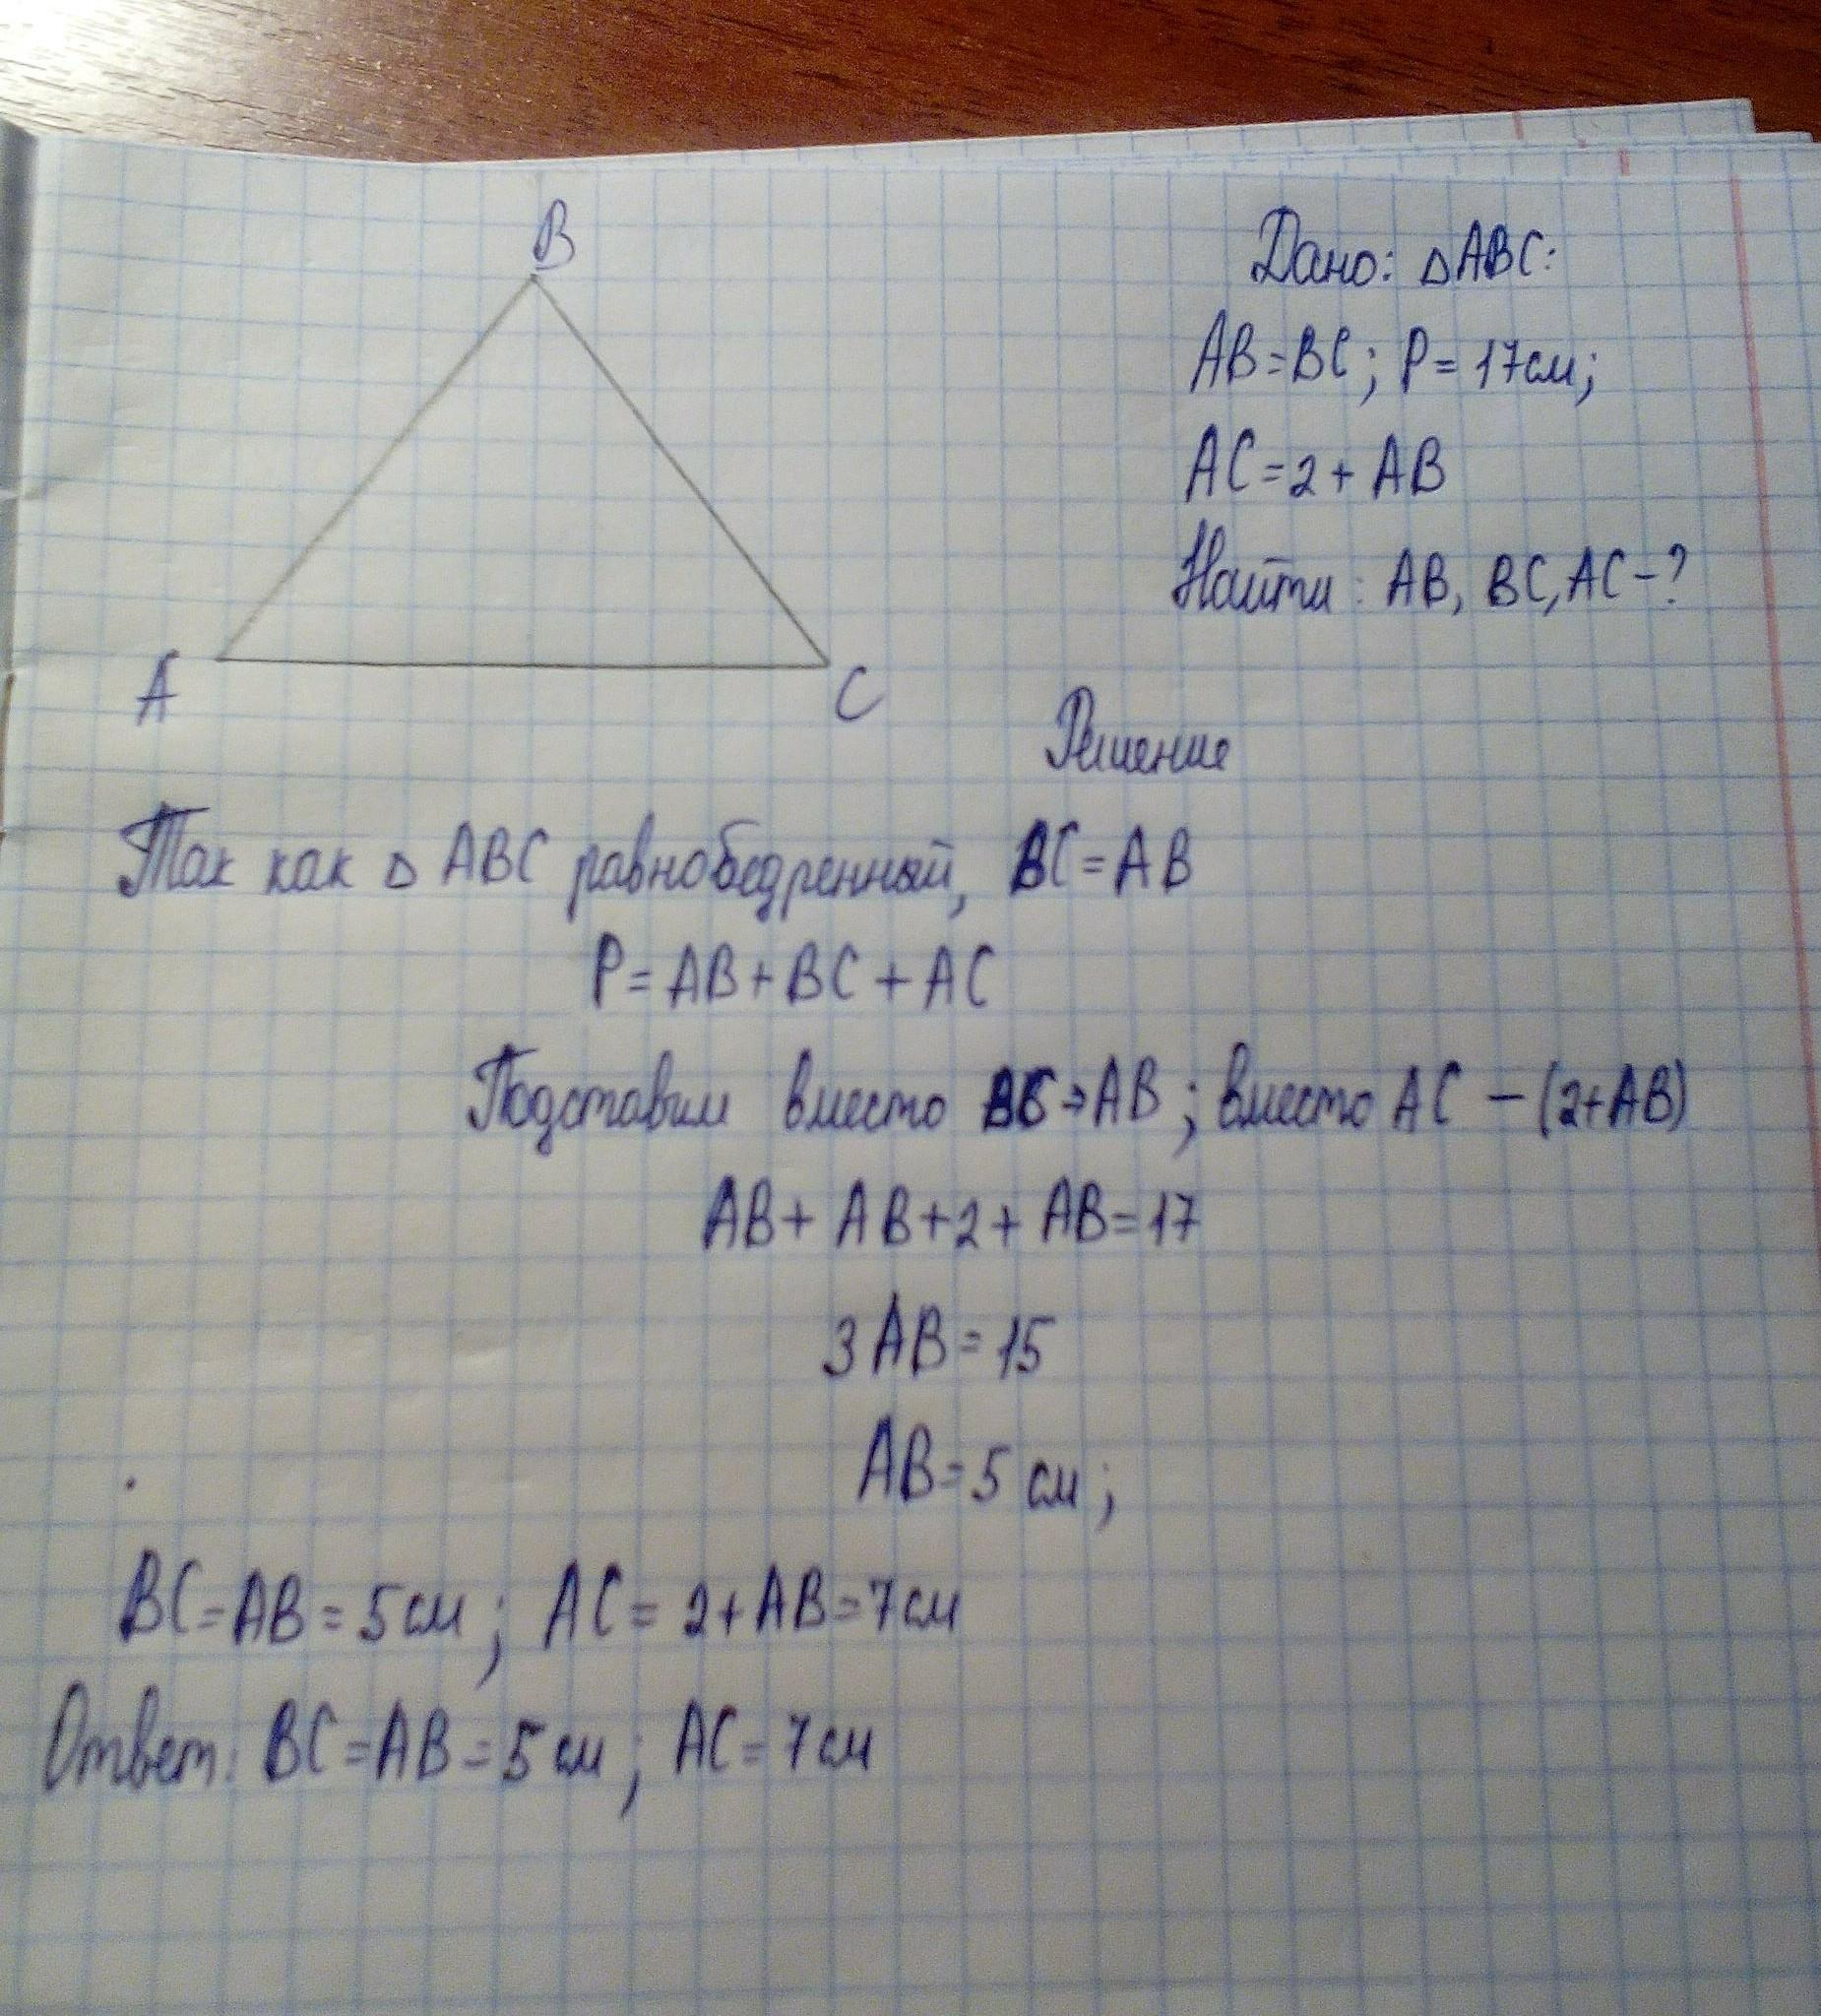 B
A
C
Дано: △ABC:
AB=BC; P=17см;
AC=2+AB
Найти: AB, BC, AC-?
Решение
Так как △ ABC равнобедренный, BC=AB
P=AB+BC+AC
Подставим вместо BC→AB; вместо AC — (2+AB)
AB+AB+2+AB=17
3AB=15
AB=5 см;
BC=AB=5см; AC=2+AB=7см
Ответ: BC=AB=5см; AC=7см